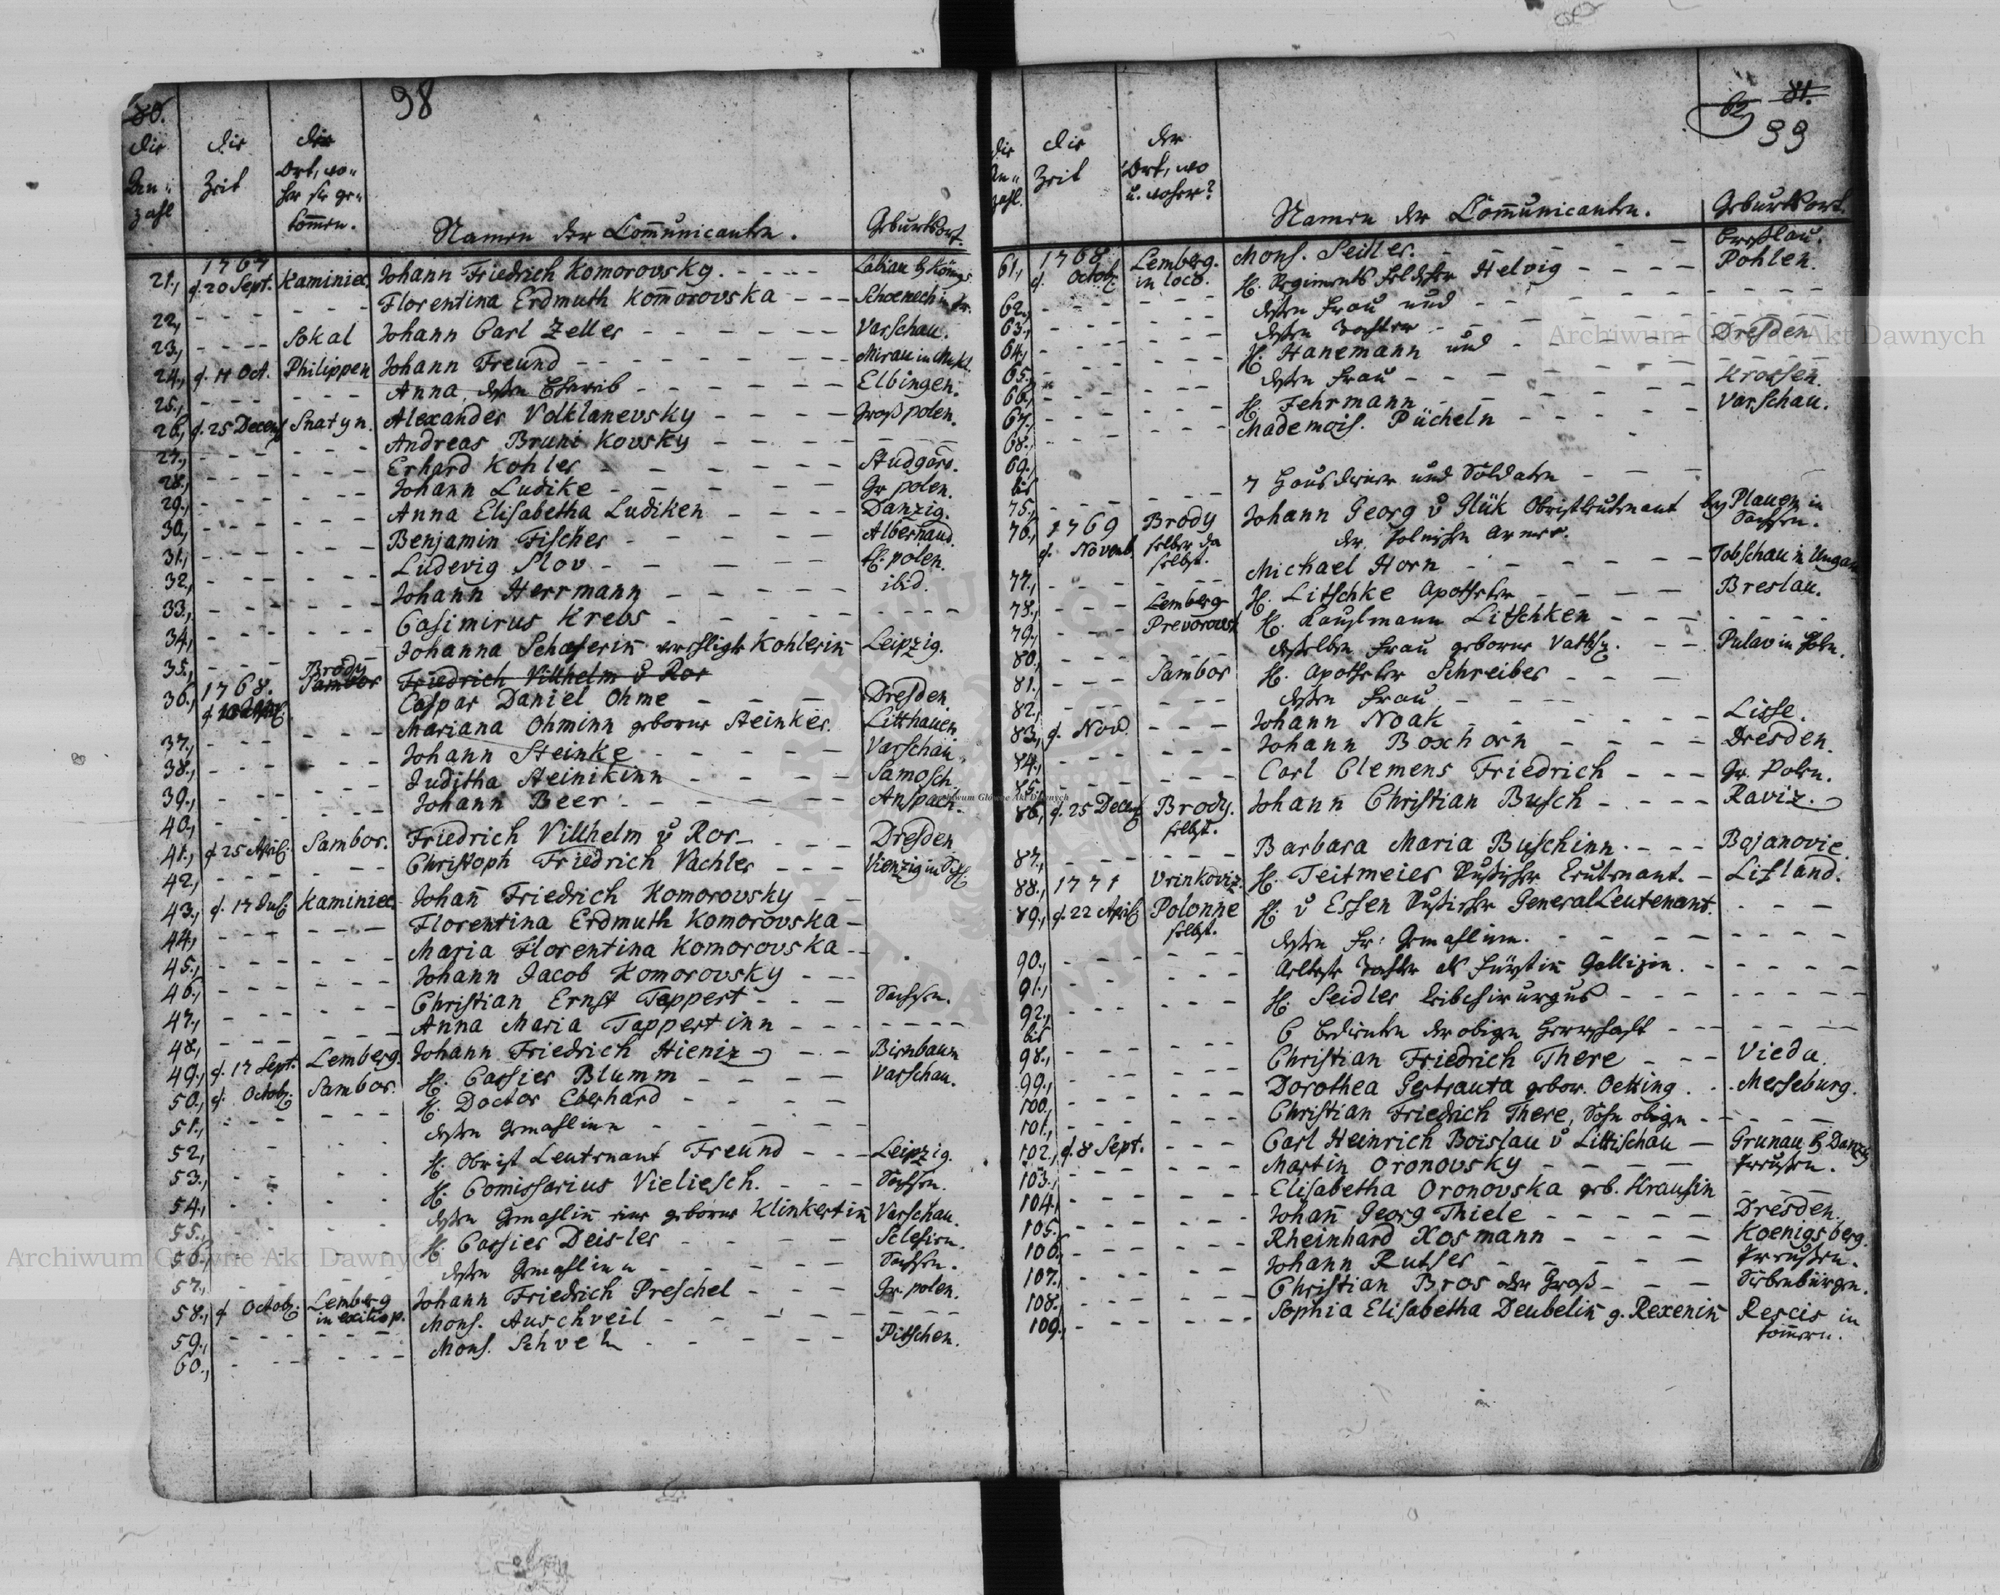 80.
98
die An= zahl
die Zeit
der Ort, wo= her sie ge= kom̄en.
Namen der Com̄unicanten.
Geburtsort.
21., 1767 d. 20 Sept. Kaminiec Johann Friedrich Komorovsky. Labiau
22., Florentina Erdmuth Kom̄orovska
23., Sokal Johann Carl Zeller Varschau.
24., d. 11 Oct. Philippen Johann Freund Mirau in Mekl.
25., Anna, deßen Eheweib Elbingen.
26., d. 25 Decemb Snatyn. Alexander Volklanevsky Großpolen.
27., Andreas Brunikovsky
28., Erhard Kohler Studgard.
29., Johann Ludike Gr polen.
30., Anna Elisabetha Ludiken Danzig.
31., Benjamin Fischer
32., Ludevig Slov polen.
33., Johann Herrmann ibid.
34., Casimirus Krebs
35., Johanna Schäferin̄ verehligte Kohlerin̄ Leipzig.
Brody Sambor Friedrich Villhelm v Ror
36., 1768. Caspar Daniel Ohme Dresden
37., Mariana Ohminn geborne Steinker. Litthauen
38., Johann Steinke Varschau
39., Juditha Steinikinn Samosch.
40., Johann Beer Anspach.
41., d. 25 April Sambor. Friedrich Villhelm v Ror Dresden
42., Christoph Friedrich Vachler
43., d. 17 Jul. Kaminiec Johan̄ Friedrich Komorovsky
44., Florentina Erdmuth Komorovska
45., Maria Florentina Komorovska
46., Johann Jacob Komorovsky
47., Christian Ernst Tappert Sachsen.
48., Anna Maria Tappertinn
49., d. 17 Sept. Lemberg. Johann Friedrich Hieniz Birnbaum
50., d. Octob. Sambor. H. Cassier Blumm Varschau.
51., H. Doctor Eberhard
52., deßen Gemahlinn
53., H. Obrist Leutenant Freund Leipzig.
54., H. Comissarius Vieliesch. Sachsen.
55., deßen Gemahlin̄ eine geborne Klinkertin̄ Varschau.
56., H. Cassier Deisler Selesien.
57., deßen Gemahlinn Sachsen.
58., d. Octob. Lemberg Johann Friedrich Preschel Gr. polen.
59., Mons. Auschveil
60., Mons. Schveh Pitschen.
81.
62
99
die An= zahl.
die Zeit
der Ort, wo u. woher?
Namen der Com̄unicanten.
Geburtsort.
61., 1768 d. Octob. Lemberg. in loco. Mons. Seiler. Breslau.
62., H. Regiments Feldscher Helvig Pohlen.
63., deßen Frau und
64., deßen Tochter
65., H. Hanemann und Dresden
66., deßen Frau
67., H. Fehrmann Krossen.
68., Mademois. Pücheln Varschau.
69., bis 75., 7 Hausdiener und Soldaten
76., 1769 d. Novemb Brody selber da selbst. Johann Georg v Glük Obristleutenant bey Plauen in Sachsen.
der Polnischen Armee.
77., Michael Horn Tobschau in Ungarn
78., Lemberg H. Litschke Apotheker Breslau.
79., Prevorovsk H. Kaufmann Litschken
80., deßelben Frau geborne Pulav in Polen.
81., Sambor H. Apotheker Schreiber
82., deßen Frau
83., d. Novd. Johann Noak Lisse.
84., Johann Boxhorn Dresden.
85., Carl Clemens Friedrich Gr. Polen.
86., d. 25 Decemb Brody. selbst. Johann Christian Busch Raviz.
87., Barbara Maria Buschinn. Bojanovic.
88., 1771 Vrinkoviz. H. Teitmeier Rußischer Leutenant. Lifland.
89., d. 22 April Polonne selbst. H. v Essen Rußischer GeneralLeutenant.
90., deßen Fr: Gemahlinn.
91., Aelteste Tochter als Fürstin̄ Gallizin.
92., H. Seidler Leibchirurgus
bis 98., 6 Bedienten der obigen Herrschaft
99., Christian Friedrich There Vieda.
100., Dorothea Gertrauta gebor. Oetting. Merseburg.
101., Christian Friedrich There, Sohn obigen
102., d. 8 Sept. Carl Heinrich Boislau v Littischau Grunau b. Danzig
103., Martin Oronovsky Preußen.
104., Elisabetha Oronovska geb. Krausin
105., Johan̄ Georg Thiele Dresden.
106., Rheinhard Kosmann Koenigsberg.
107., Johann Rutser Preußen.
108., Christian Bros oder Groß Siebenbürgen.
109., Sophia Elisabetha Deubelin̄ g. Rexenin̄ Rescis in Pom̄ern.
Archiwum Główne Akt Dawnych
Archiwum Główne Akt Dawnych
Archiwum Główne Akt Dawnych